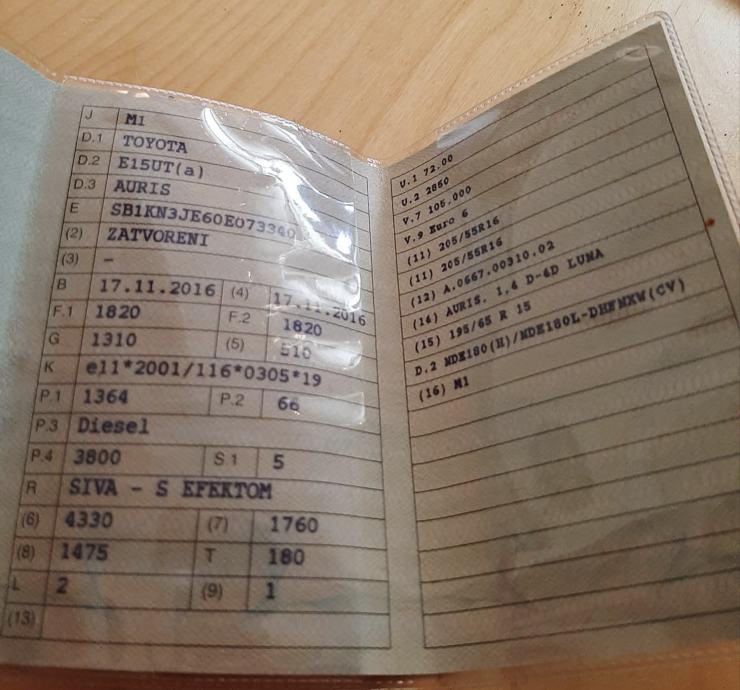 J M1
D.1 TOYOTA
D.2 E15UT(a)
D.3 AURIS
E SB1KN3JE60E073340
(2) ZATVORENI
(3) -
B 17.11.2016 (4) 17.11.2016
F.1 1820 F.2 1820
G 1310 (5) 510
K e11*2001/116*0305*19
P.1 1364 P.2 66
P.3 Diesel
P.4 3800 S.1 5
R SIVA - S EFEKTOM
(6) 4330 (7) 1760
(8) 1475 T 180
L 2 (9) 1
(13)
U.1 72.00
U.2 2850
V.7 105,000
V.9 Euro 6
(11) 205/55R16
(11) 205/55R16
(12) A.0667.00310.02
(14) AURIS. 1,4 D-4D LUNA
(15) 195/65 R 15
D.2 NDE180(H)/NDE180L-DHFNXW(CV)
(16) M1